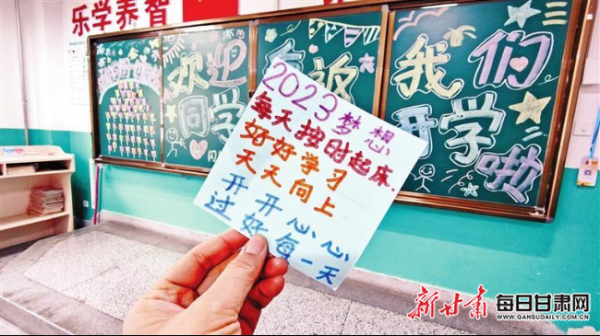 乐学养智
欢迎
同学
返
我们
开学啦
2023梦想
每天按时起床.
好好学习
天天向上
开开心心
过好每一天
新甘肃
每日甘肃网
WWW.GANSUDAILY.COM.CN